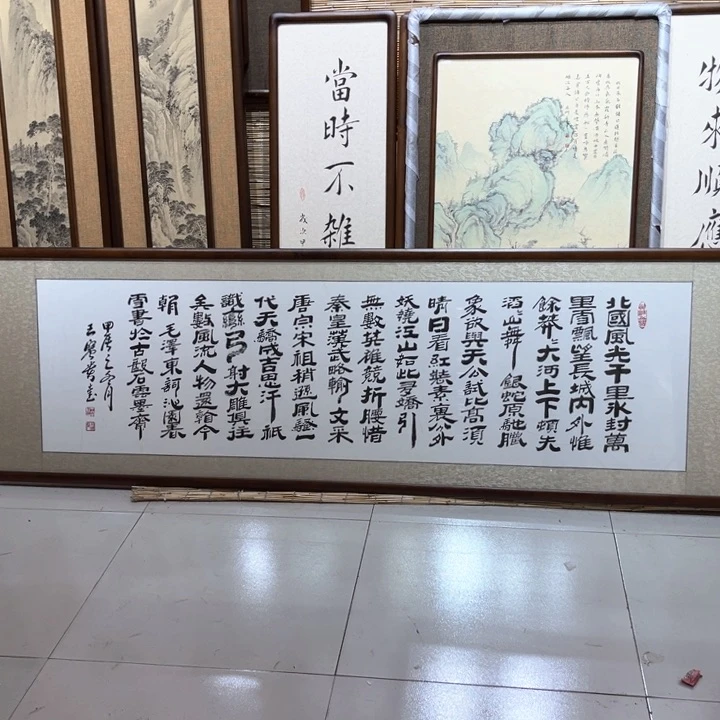 當時不雜
物來順應
北國風光千里冰封萬
里雪飄望長城內外惟
餘莽〻大河上下頓失
滔〻山舞銀蛇原馳臘
象欲與天公試比高須
晴日看紅裝素裹分外
妖嬈江山如此多嬌引
無數英雄競折腰惜
秦皇漢武略輸文采
唐宗宋祖稍遜風騷一
代天驕成吉思汗祇
識彎弓射大雕俱往
矣數風流人物還看今
朝毛澤東詞沁園春
雪書於古磐石雲墨齋
甲辰之冬月